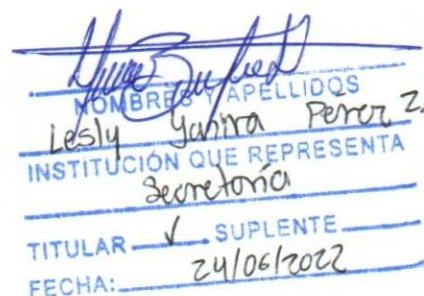 NOMBRES Y APELLIDOS
Lesly Yahira Pérez Z.
INSTITUCIÓN QUE REPRESENTA
Secretaría
TITULAR ✓ SUPLENTE
FECHA: 24/06/2022